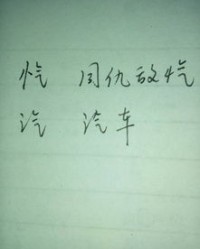 忾 同仇敌忾
汽 汽车